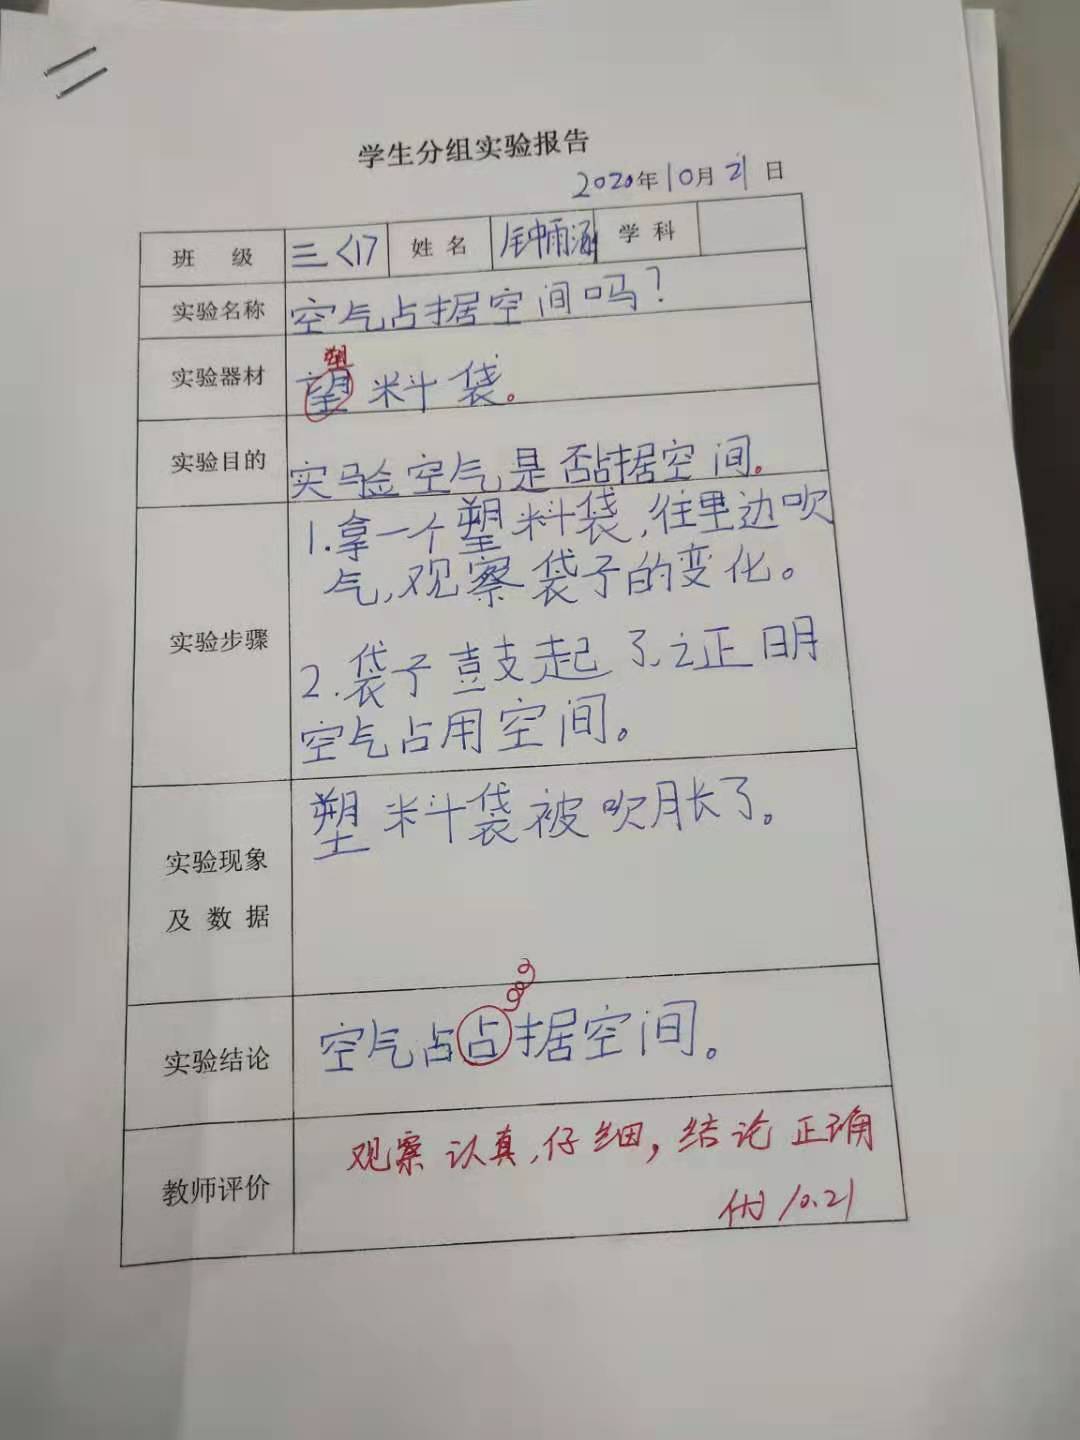 学生分组实验报告
2020年10月21日
班 级 三<17 姓名 钟雨涵 学科
实验名称 空气占据空间吗?
塑
实验器材 望料袋。
实验目的 实验空气是否占据空间。
1.拿一个塑料袋,往里边吹
气,观察袋子的变化。
实验步骤
2.袋子鼓起了,证明
空气占用空间。
塑料袋被吹胀了。
实验现象
及数据
实验结论 空气占占据空间。
观察认真,仔细,结论正确
教师评价
优 10.21